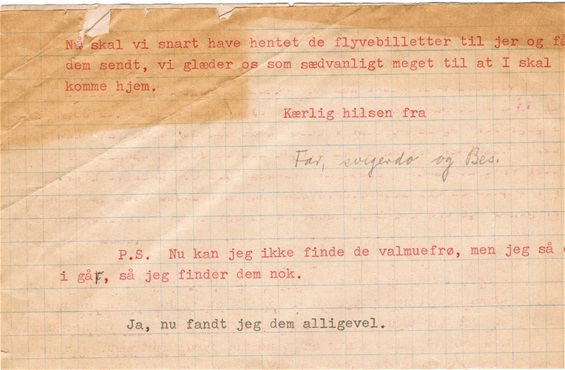 Nå skal vi snart have hentet de flyvebilletter til jer og få
dem sendt, vi glæder os som sædvanligt meget til at I skal
komme hjem.
Kærlig hilsen fra
Far, svigerdo og Bes.
P.S. Nu kan jeg ikke finde de valmuefrø, men jeg så
i går, så jeg finder dem nok.
Ja, nu fandt jeg dem alligevel.